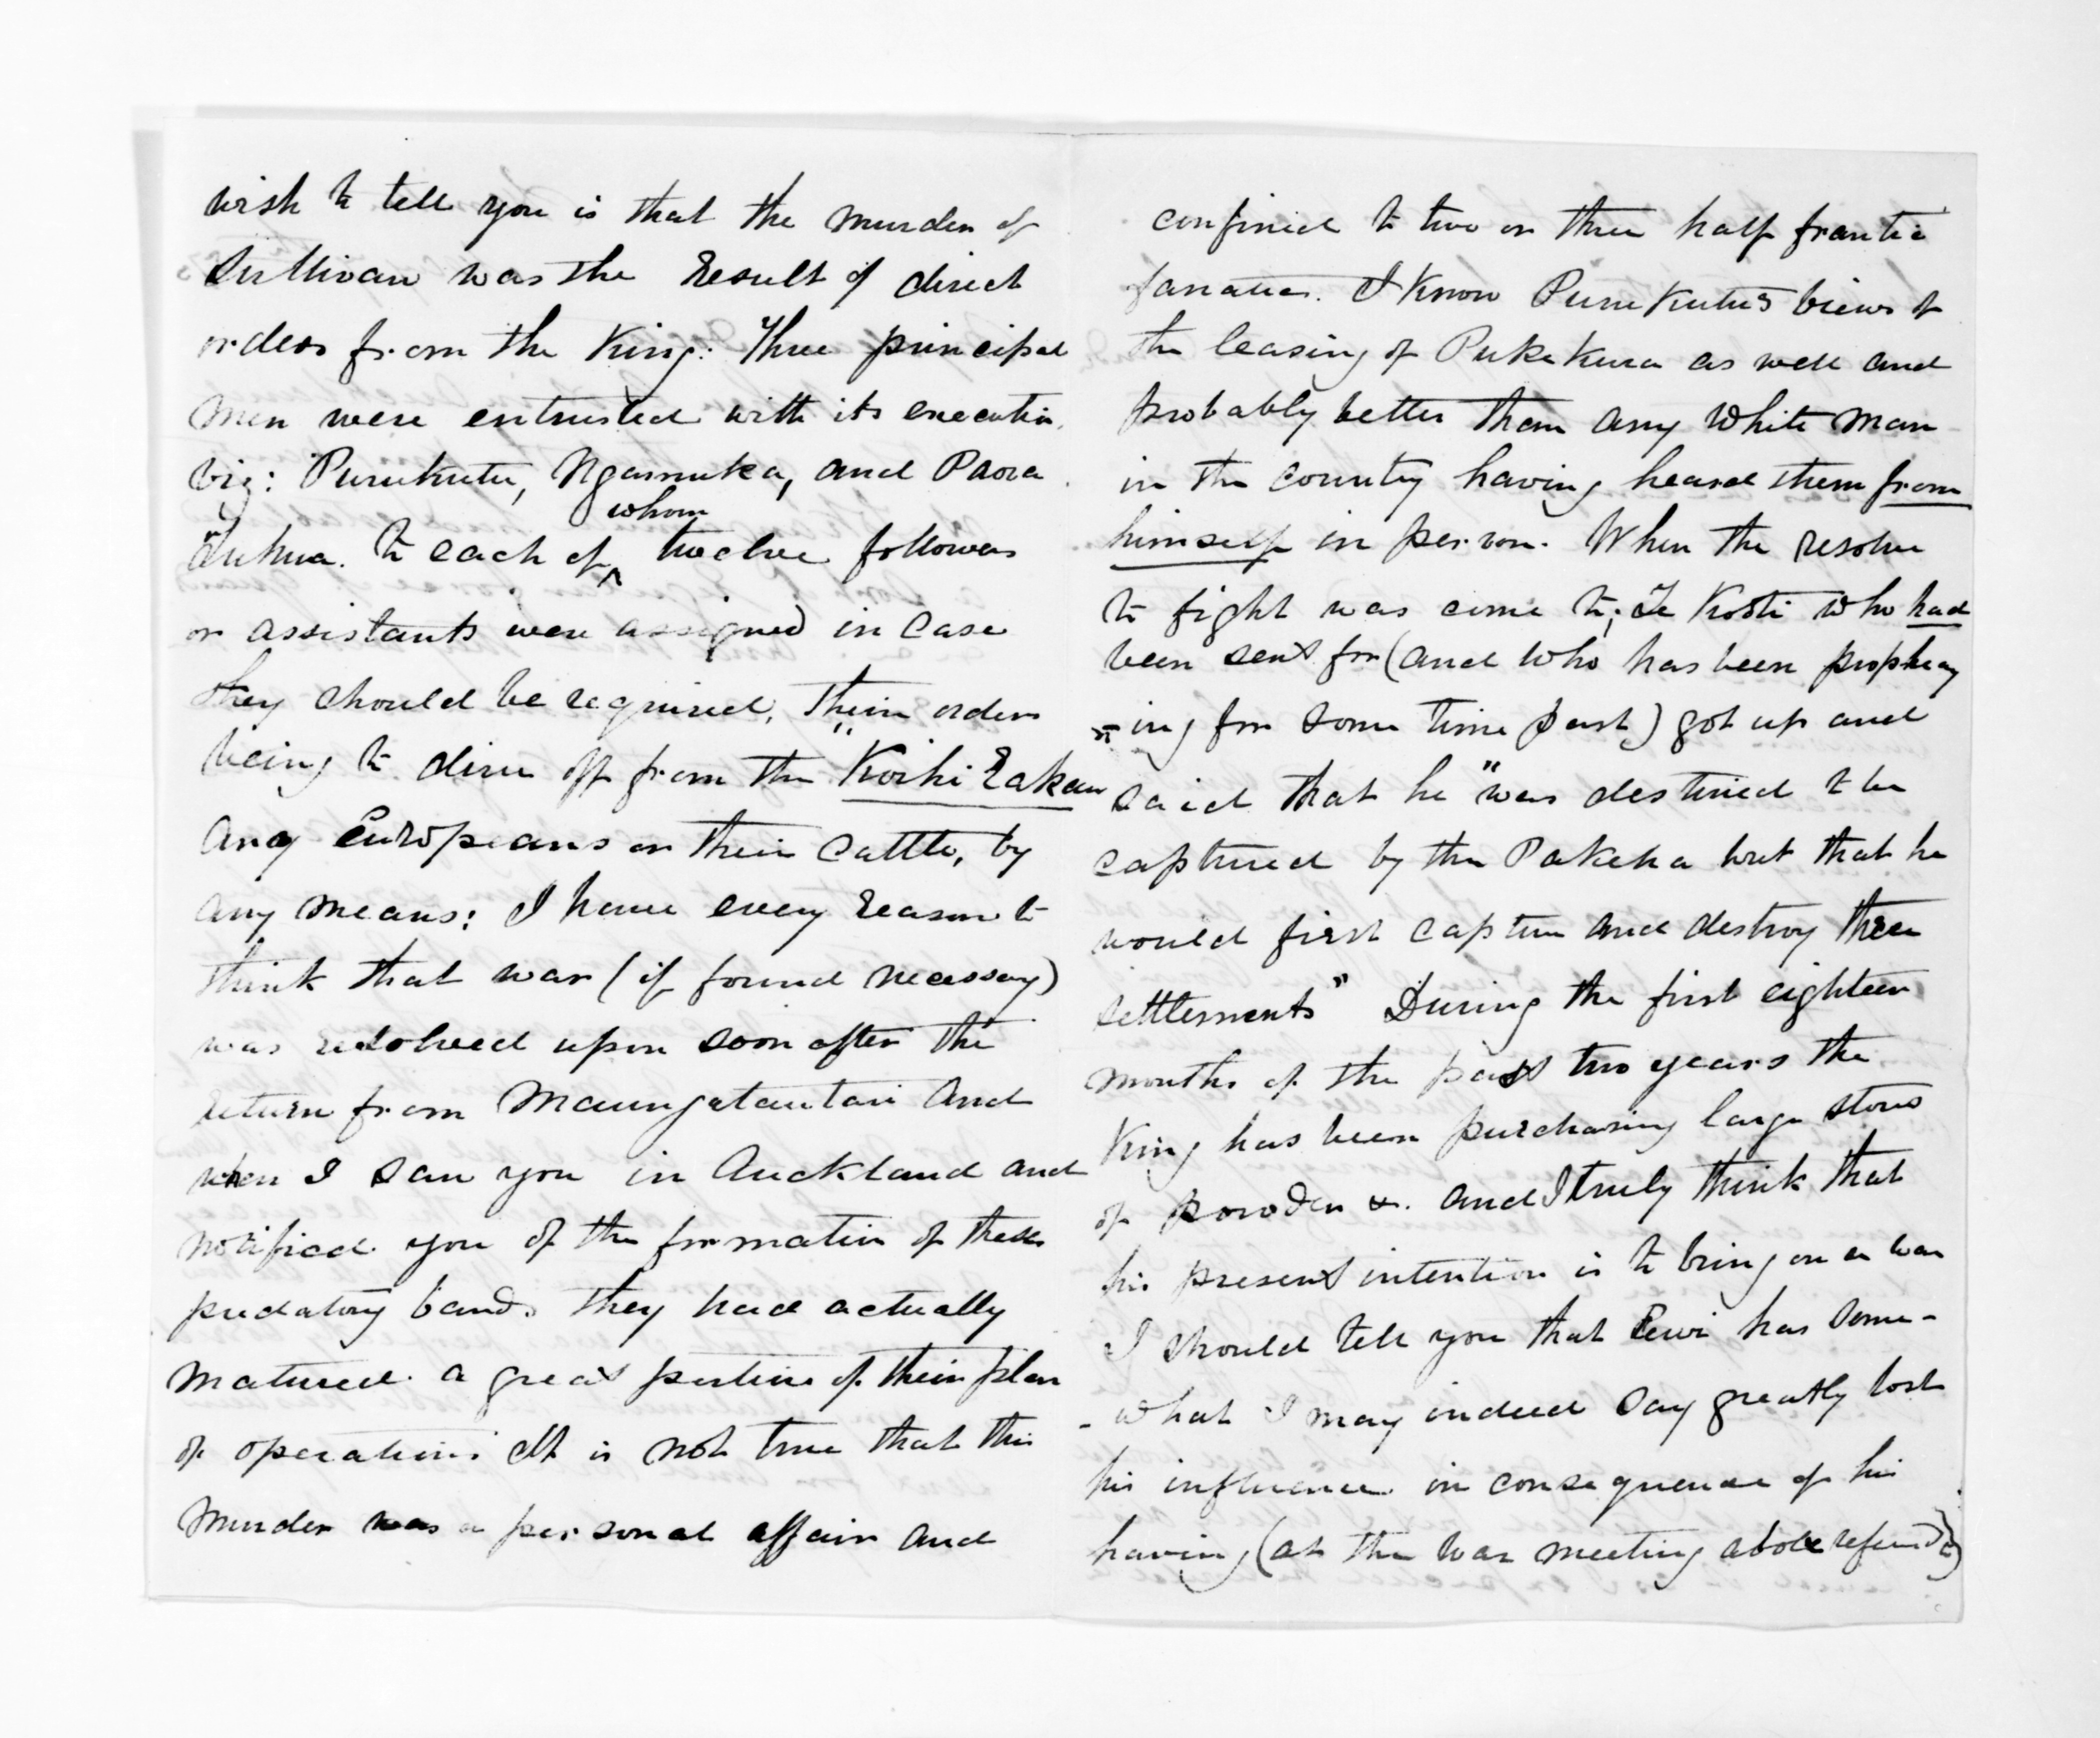 wish to tell you is that the murder of
Sullivan was the result of direct
orders from the King: Three principal
men were entrusted with its execution,
viz: Purukutu, Ngamuka, and Paora
Tuhua. to each of whom twelve followers
or assistants were assigned in case
they should be required, their orders
being to drive off from the "Kaihi Rakau
any Europeans or their cattle, by
any means: I have every reason to
think that war (if found necessary)
was resolved upon soon after the
return from Maungatautari and
when I saw you in Auckland and
notified you of the formation of these
predatory bands they had actually
matured a great portion of their plan
of operations It is not true that this
murder was a personal affair and
confined to two or three half frantic
fanatics. I know Purukutu's views of
the leasing of Pukekura as well and
probably better than any white man
in the country having heard them from
himself in person. When the resolve
to fight was come to, Te Kooti who had
been sent for (and who has been prophecy
=ing for some time past) got up and
said that he "was destined to be
captured by the Pakeha but that he
would first capture and destroy three
settlements" During the first eighteen
months of the past two years the
King has been purchasing large stores
of powder &. and I truly think that
his present intention is to bring on a war
I should tell you that Rewi has some-
-what I may indeed say greatly lost
his influence in consequence of his
having (at the war meeting above referred to)